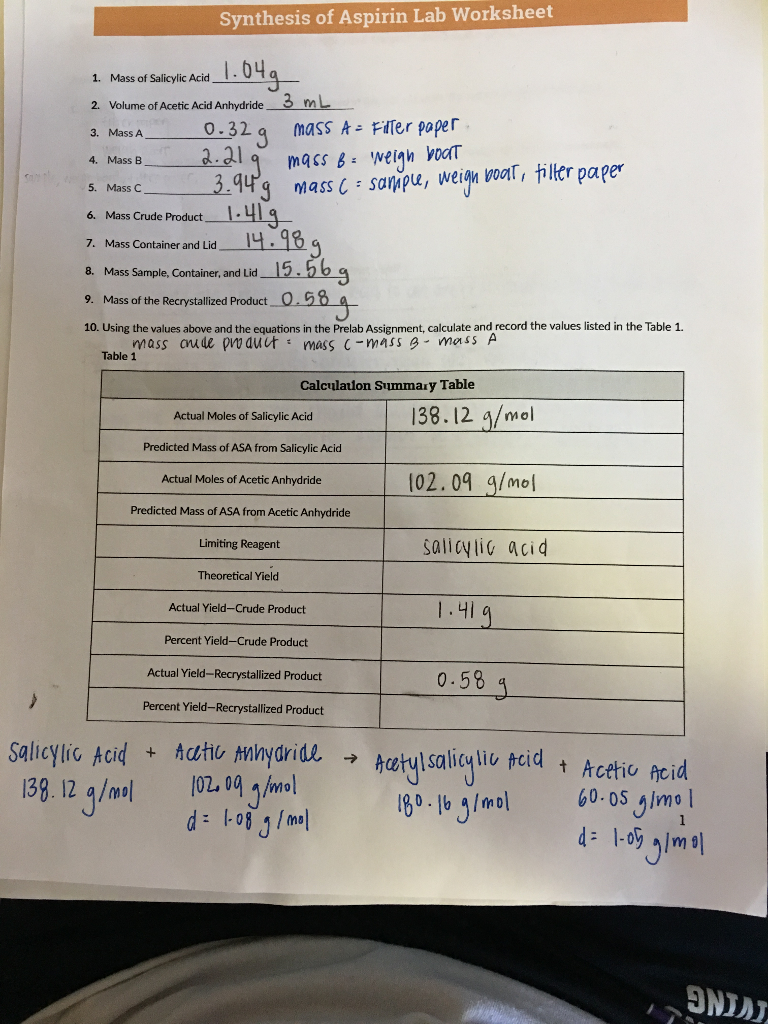 Synthesis of Aspirin Lab Worksheet
1. Mass of Salicylic Acid 1.04g
2. Volume of Acetic Acid Anhydride 3 mL
3. Mass A 0.32 g mass A = Filter paper
4. Mass B 2.21 g mass B = weigh boat
5. Mass C 3.94 g mass C = sample, weigh boat, filter paper
6. Mass Crude Product 1.41g
7. Mass Container and Lid 14.98 g
8. Mass Sample, Container, and Lid 15.56 g
9. Mass of the Recrystallized Product 0.58 g
10. Using the values above and the equations in the Prelab Assignment, calculate and record the values listed in the Table 1.
mass crude product = mass C - mass B - mass A
Table 1
Calculation Summary Table
Actual Moles of Salicylic Acid 138.12 g/mol
Predicted Mass of ASA from Salicylic Acid
Actual Moles of Acetic Anhydride 102.09 g/mol
Predicted Mass of ASA from Acetic Anhydride
Limiting Reagent salicylic acid
Theoretical Yield
Actual Yield—Crude Product 1.41 g
Percent Yield—Crude Product
Actual Yield—Recrystallized Product 0.58 g
Percent Yield—Recrystallized Product
Salicylic Acid + Acetic Anhydride → Acetylsalicylic Acid + Acetic Acid
138.12 g/mol 102.09 g/mol 180.16 g/mol 60.05 g/mol
1
d = 1.08 g/mol d = 1.05 g/mol